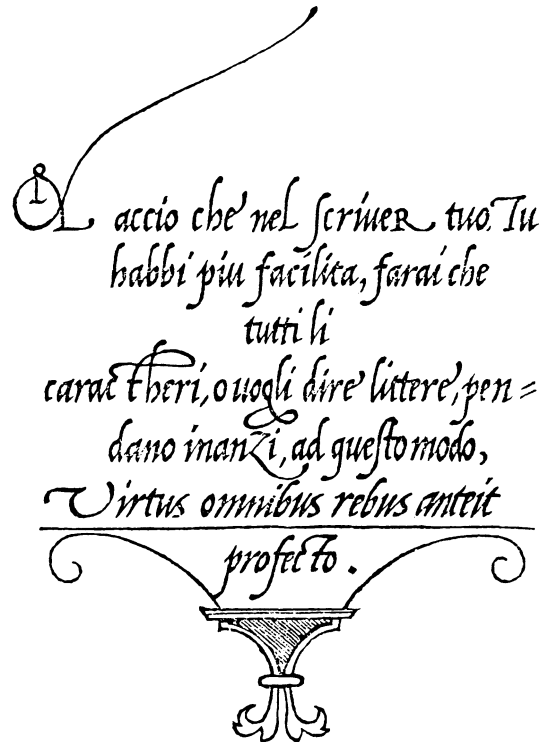 L accio che nel ſcriueR tuo. Tu
habbi piu facilita, farai che
tutti li
caractheri, o uogli dire littere, pen=
dano inanzi, ad queſto modo,
Virtus omnibus rebus anteit
profecto.